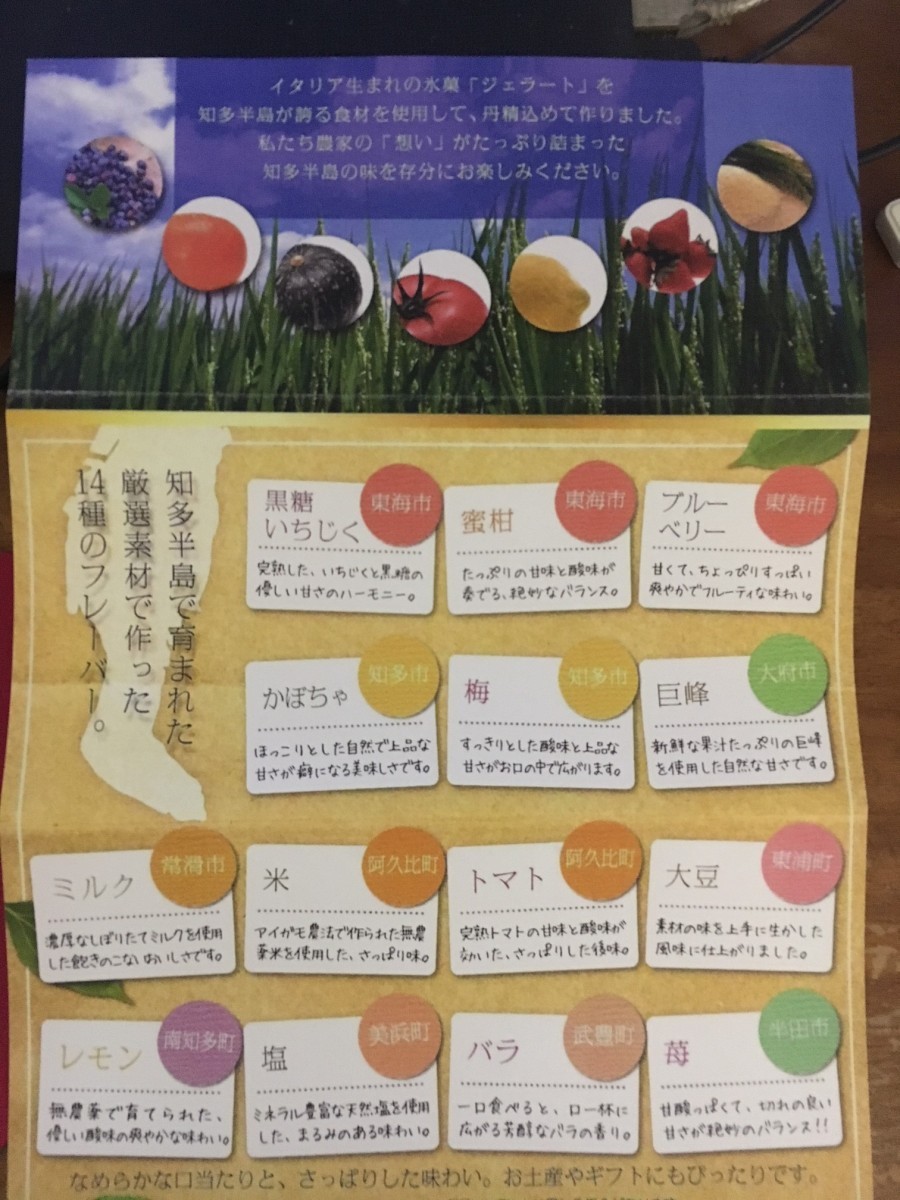 イタリア生まれの氷菓「ジェラート」を
知多半島が誇る食材を使用して、丹精込めて作りました。
私たち農家の「想い」がたっぷり詰まった
知多半島の味を存分にお楽しみください。
知多半島で育まれた
厳選素材で作った
14種のフレーバー。
黒糖
いちじく
東海市
完熟した、いちじくと黒糖の
優しい甘さのハーモニー。
蜜柑
東海市
たっぷりの甘味と酸味が
奏でる、絶妙なバランス。
ブルー
ベリー
東海市
甘くて、ちょっぴりすっぱい
爽やかでフルーティな味わい。
かぼちゃ
知多市
ほっこりとした自然で上品な
甘さが癖になる美味しさです。
梅
知多市
すっきりとした酸味と上品な
甘さがお口の中で広がります。
巨峰
大府市
新鮮な果汁たっぷりの巨峰
を使用した自然な甘さです。
ミルク
常滑市
濃厚なしぼりたてミルクを使用
した飽きのこないおいしさです。
米
阿久比町
アイガモ農法で作られた無農
薬米を使用した、さっぱり味。
トマト
阿久比町
完熟トマトの甘味と酸味が
効いた、さっぱりした後味。
大豆
東浦町
素材の味を上手に生かした
風味に仕上がりました。
レモン
南知多町
無農薬で育てられた、
優しい酸味の爽やかな味わい。
塩
美浜町
ミネラル豊富な天然塩を使用
した、まるみのある味わい。
バラ
武豊町
一口食べると、口一杯に
広がる芳醇なバラの香り。
苺
半田市
甘酸っぱくて、切れの良い
甘さが絶妙のバランス!!
なめらかな口当たりと、さっぱりした味わい。お土産やギフトにもぴったりです。